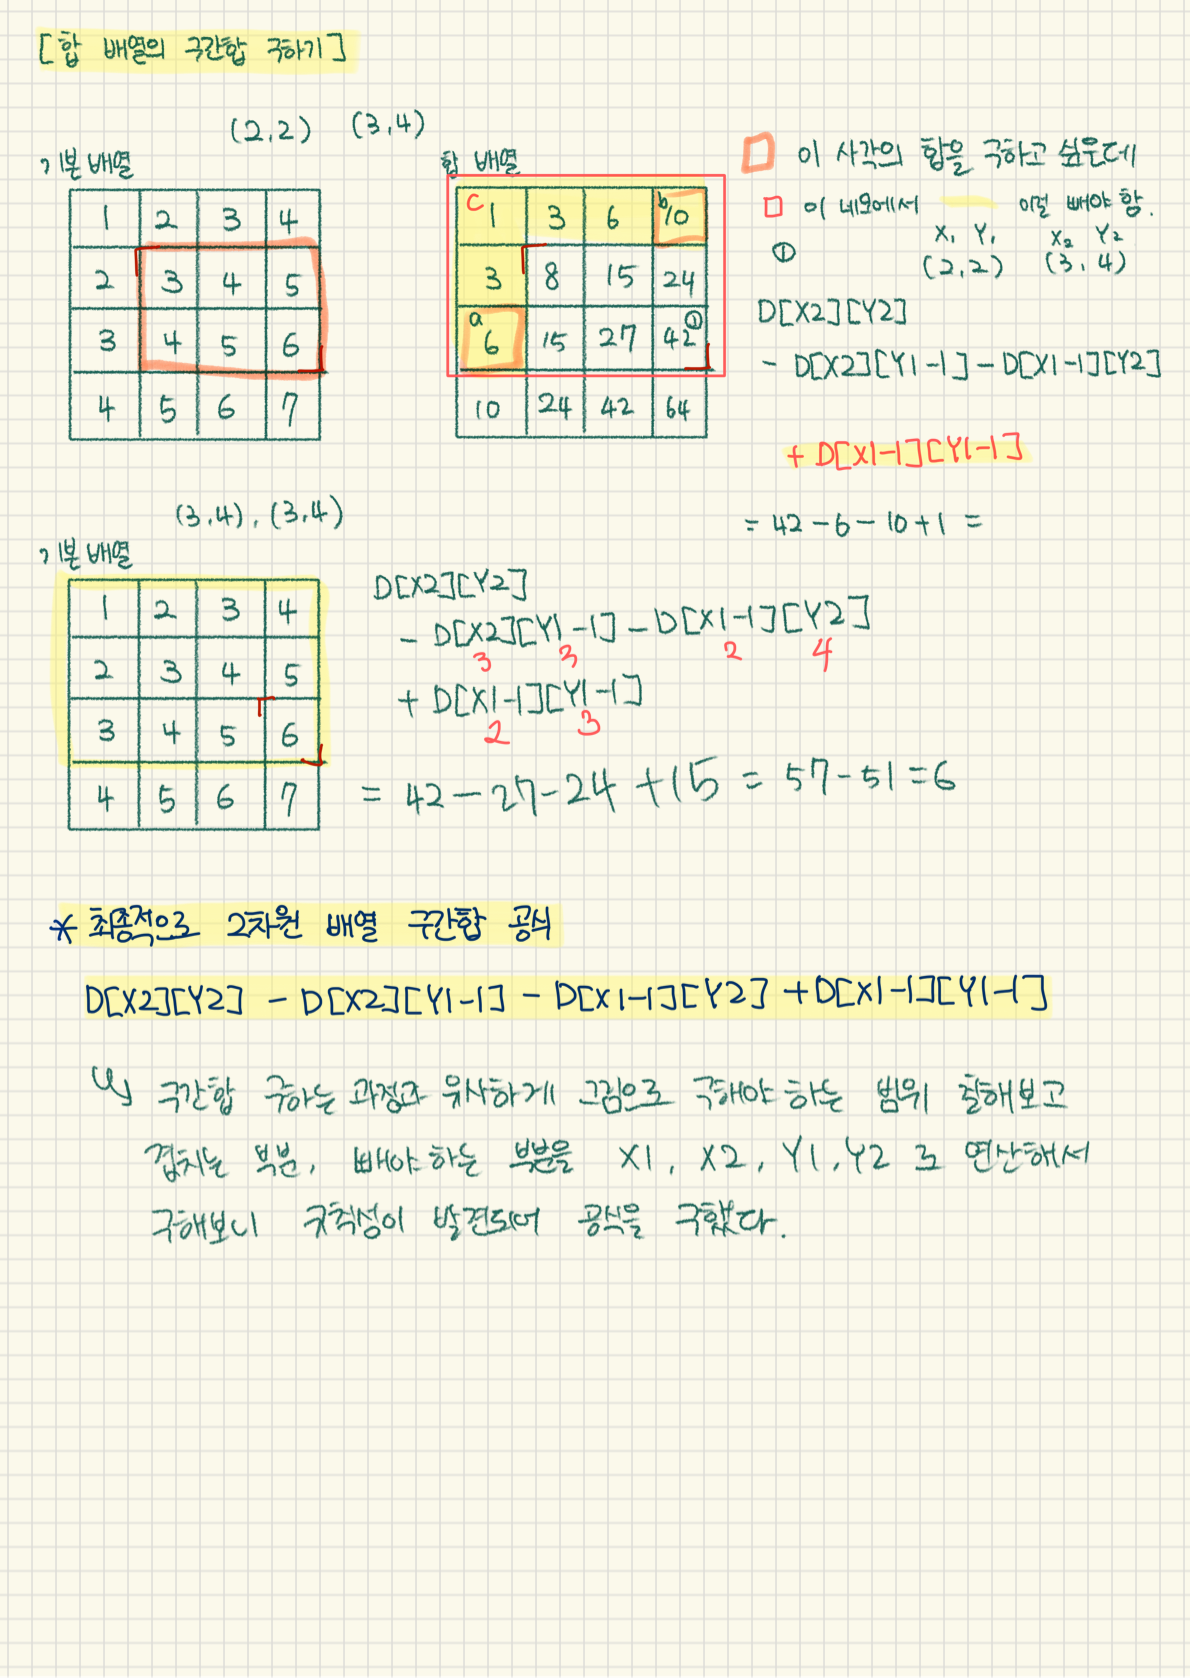 [합 배열의 구간합 구하기]
(2,2) (3,4)
기본 배열
1 2 3 4
2 3 4 5
3 4 5 6
4 5 6 7
합 배열
c 1 3 6 b 10
3 8 15 24
a 6 15 27 42 ①
10 24 42 64
이 사각의 합을 구하고 싶은데
이 네모에서 이걸 빼야 함.
X₁ Y₁ X₂ Y₂
① (2,2) (3,4)
D[X2][Y2]
- D[X2][Y1-1] - D[X1-1][Y2]
+ D[X1-1][Y1-1]
= 42 - 6 - 10 + 1 =
(3,4), (3,4)
기본 배열
1 2 3 4
2 3 4 5
3 4 5 6
4 5 6 7
D[X2][Y2]
- D[X2][Y1-1] - D[X1-1][Y2]
3 3 2 4
+ D[X1-1][Y1-1]
2 3
= 42 - 27 - 24 + 15 = 57 - 51 = 6
* 최종적으로 2차원 배열 구간합 공식
D[X2][Y2] - D[X2][Y1-1] - D[X1-1][Y2] + D[X1-1][Y1-1]
↳ 구간합 구하는 과정과 유사하게 그림으로 구해야 하는 범위 칠해보고
겹치는 부분, 빼야 하는 부분을 X1, X2, Y1, Y2 로 연산해서
구해보니 규칙성이 발견되어 공식을 구했다.